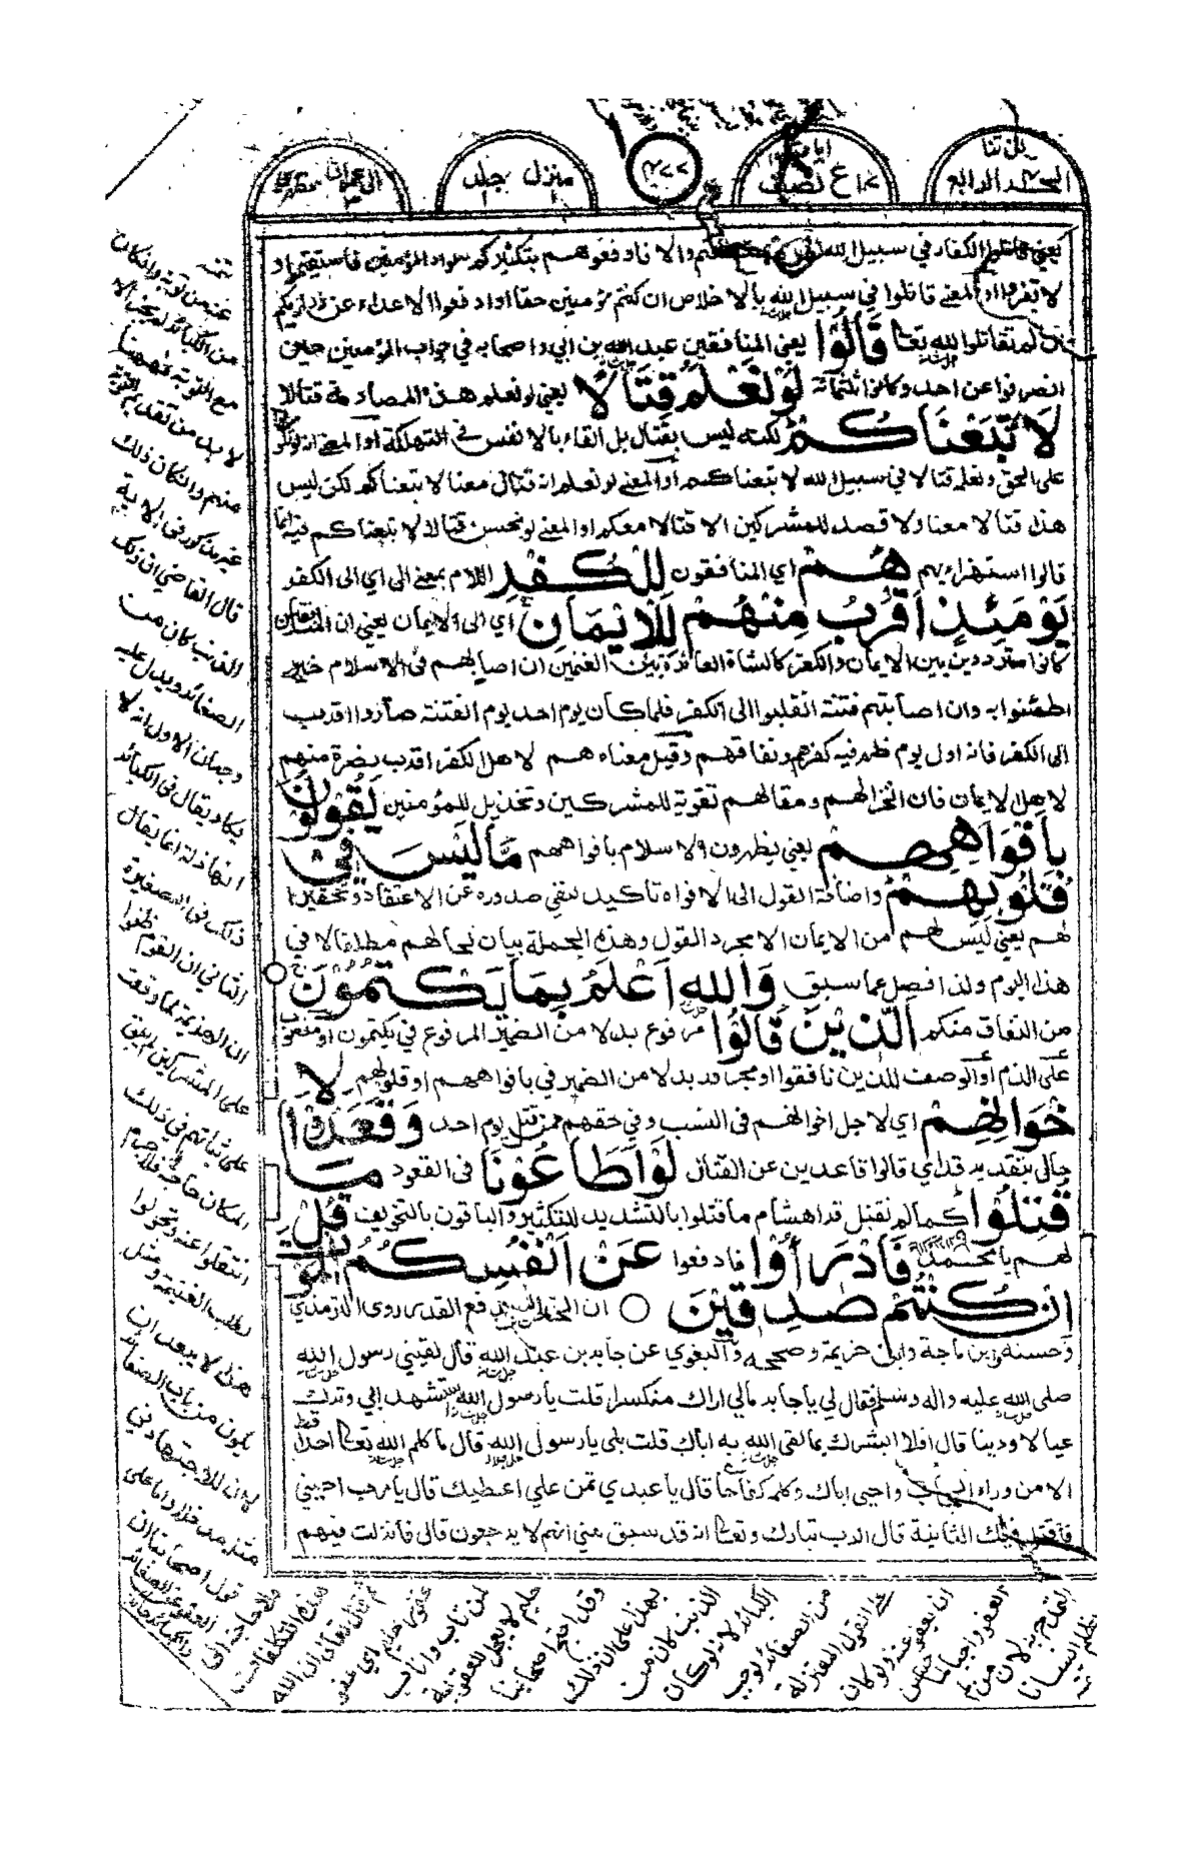 لن تنا
الجلد الرابع
ع نصف
منزل جلد
ال عمران
يعني قاتلوا الكفار في سبيل الله والا فادفعوهم بتكثيركم سواد المؤمنين فاستقيموا و
لا تفروا او المعنى قاتلوا في سبيل الله بالاخلاص ان كنتم مؤمنين حقا او ادفعوا الاعداء عن
ان لم تقاتلوا لله تعا قَالُوْا يعني المنافقين عبد الله بن ابي واصحابه في جواب المؤمنين حين
انصرفوا عن احد وكانوا ثلثمائة لَوْ نَعْلَمُ قِتَالًا يعني لو نعلم هذه المصادمة قتالا
لَّا تَّبَعْنَاكُمْ لكنه ليس بقتال بل القاء بالانفس في التهلكة او المعنى
على الحق ونعلم قتالا في سبيل الله لا تبعناكم او المعنى لو نعلم انه قتال معنا لا تبعناكم لكن ليس
هذا قتالا معنا ولا قصد للمشركين الا قتالا معكم او المعنى لو نحسن قتالا لا تبعناكم فيه انما
قالوا استهزاء بهم هُمْ اي المنافقون لِلْكُفْرِ اللام بمعنى الى اي الى الكفر
يَوْمَئِذٍ اَقْرَبُ مِنْهُمْ لِلْاِيْمَانِ اي الى الايمان يعني ان المنافقين
كانوا مترددين بين الايمان والكفر كالشاة العائرة بين الغنمين ان اصابهم في الاسلام خير
اطمئنوا به وان اصابتهم فتنة انقلبوا الى الكفر فلما كان يوم احد يوم الفتنة صاروا اقرب
الى الكفر فانه اول يوم ظهر فيه كفرهم ونفاقهم وقيل معناه هم لاهل الكفر اقرب نصرة منهم
لاهل الايمان فان انخزالهم ومقالهم تقوية للمشركين وتخذيل للمؤمنين يَقُوْلُوْنَ
بِاَفْوَاهِهِمْ يعني يظهرون الاسلام بافواههم مَّا لَيْسَ فِيْ
قُلُوْبِهِمْ واضافة القول الى الافواه تاكيد لنفي صدوره عن الاعتقاد وتحقير
لهم يعني ليس لهم من الايمان الا مجرد القول وهذه الجملة بيان لحالهم مطلقا لا في
هذا اليوم ولذا فصل عما سبق وَاللهُ اَعْلَمُ بِمَا يَكْتُمُوْنَ
من النفاق منكم اَلَّذِيْنَ قَالُوْا مرفوع بدلا من الضمير المرفوع في يكتمون او منصوب
على الذم او الوصف للذين نافقوا او مجرور بدلا من الضمير في بافواههم او قلوبهم لِا
خْوَانِهِمْ اي لاجل اخوانهم في النسب وفي حقهم ممن قتل يوم احد وَقَعَدُوْا
حال بتقدير قد اي قالوا قاعدين عن القتال لَوْ اَطَاعُوْنَا في القعود مَا
قُتِلُوْا كما لم نقتل قرا هشام ما قتلوا بالتشديد للتكثير والباقون بالتخفيف قُلْ
لهم يا محمد فَادْرَءُوْا فادفعوا عَنْ اَنْفُسِكُمُ الْمَوْتَ
اِنْ كُنْتُمْ صٰدِقِيْنَ ○ ان الحذر يدفع القدر روى الترمذي
وحسنه وابن ماجة وابن خزيمة وصححه والبغوي عن جابر بن عبد الله قال لقيني رسول الله
صلى الله عليه واله وسلم فقال لي يا جابر مالي اراك منكسرا قلت يا رسول الله استشهد ابي وترك
عيالا ودينا قال افلا ابشرك بما لقى الله به اباك قلت بلى يا رسول الله قال ما كلم الله تعا احدا قط
الا من وراء الحجاب واحيى اباك وكلمه كفاحا قال يا عبدي تمن علي اعطيك قال يا رب احييني
فاقتل فيك الثانية قال الرب تبارك وتعا انه قد سبق مني انهم لا يرجعون قال فانزلت فيهم
تتمة
عنه من توبة وان كان
من الكبائر
مع التوبة فههنا
لا بد من تقدم التوبة
منهم وان كان ذلك
غير مذكور في الاية
قال القاضي ان ذلك
الذنب كان من
الصغائر ويدل عليه
وجهان الاول انه لا
يكاد يقال في الكبائر
انها زلة انما يقال
ذلك في الصغيرة
الثاني ان القوم ظنوا
ان الهزيمة لما وقعت
على المشركين لم يبق
على ثباتهم في ذلك
المكان حاجة فلا جرم
انتقلوا عنه وتحولوا
لطلب الغنيمة ومثل
هذا لا يبعد ان
يكون من باب الصغائر
لان للاجتهاد في
مثله مدخلا واما على
قول اصحابنا ان
العفو عن الصغائر
والكبائر جائز
فلا حاجة
لهذه التكلفات
ثم قال تعالى ان الله
غفور حليم اي غفور
لمن تاب واناب
حليم لا يعجل بالعقوبة
وقد احتج اصحابنا
بهذا على ان ذلك
الذنب كان من
الكبائر لانه لو كان
من الصغائر لوجب
على القول المعتزلة
ان يعفو عنه ولو كان
العفو واجبا لما